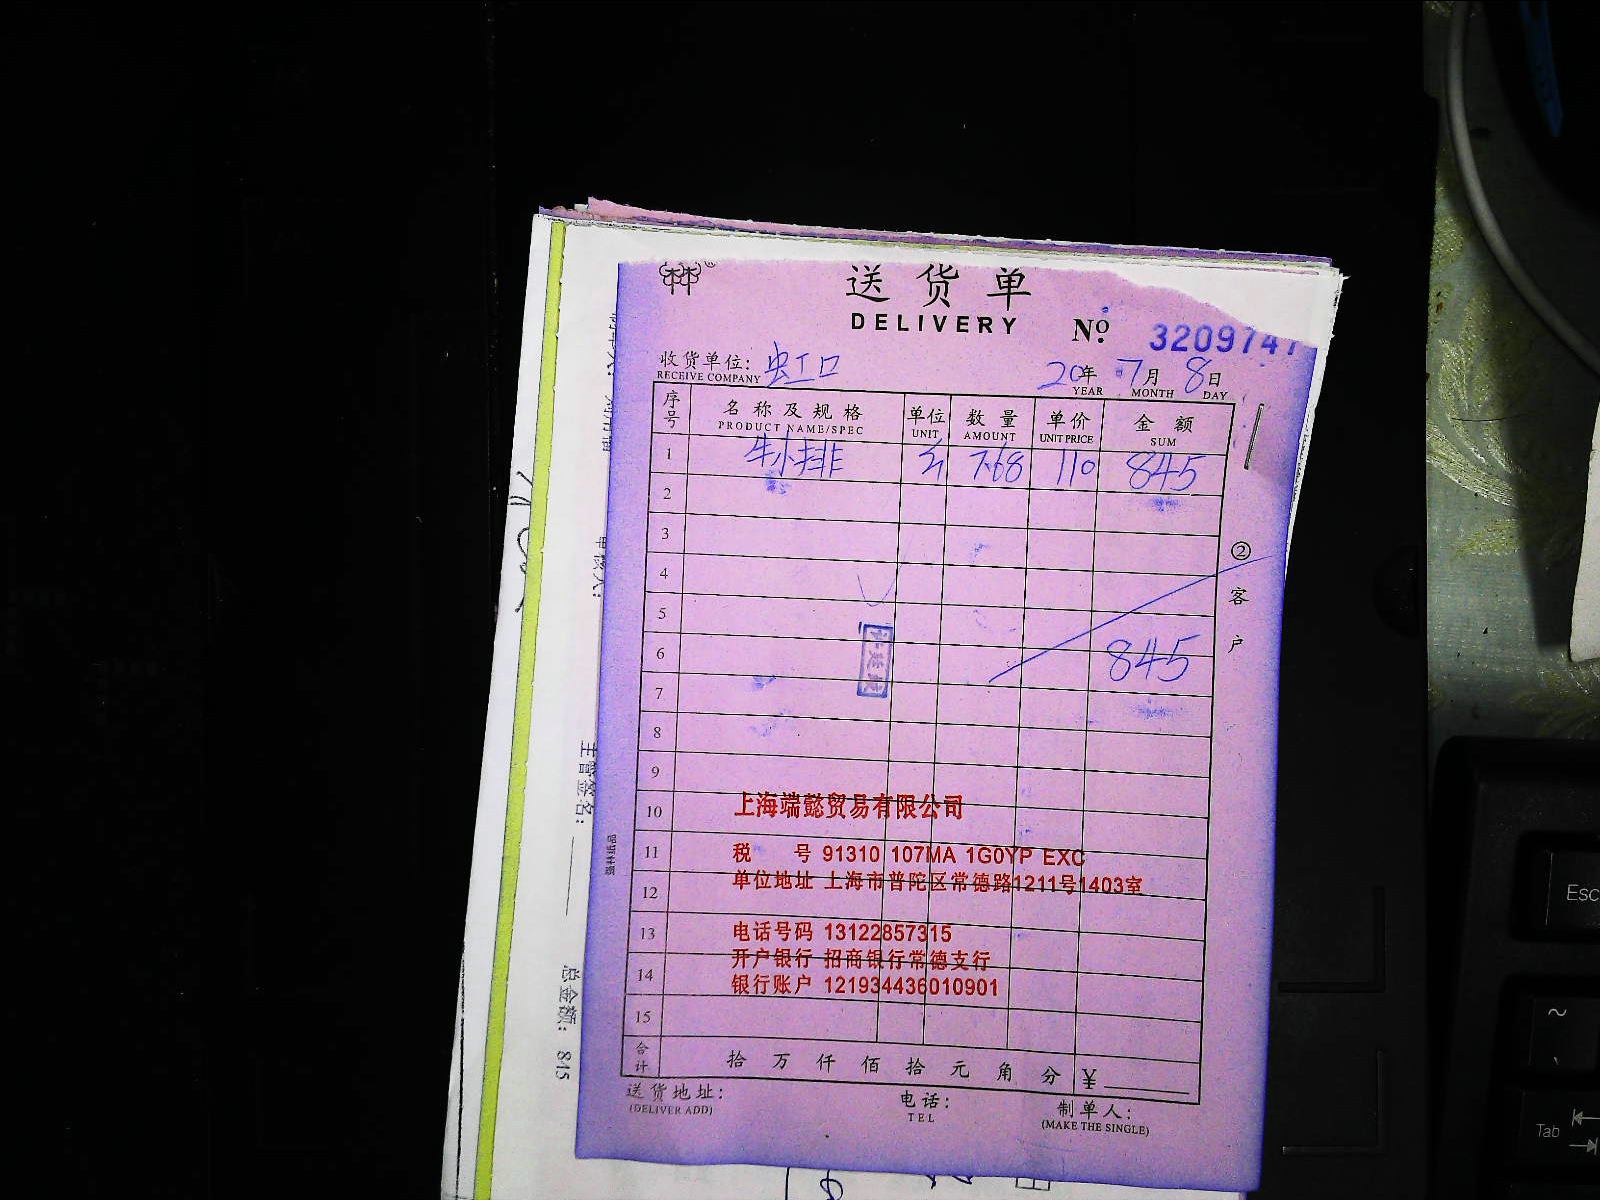 送货单
DELIVERY
No. 3209747
收货单位: 虹口
RECEIVE COMPANY
20年 7月 8日
YEAR MONTH DAY
序号 名称及规格 单位 数量 单价 金额
PRODUCT NAME/SPEC UNIT AMOUNT UNIT PRICE SUM
1 牛小排 斤 7.68 110 845
2
3
② 客户
4
5
6 845
7
8
9
10
上海端懿贸易有限公司
11
税 号 91310 107MA 1G0YP EXC
12
单位地址 上海市普陀区常德路1211号1403室
13
电话号码 13122857315
开户银行 招商银行常德支行
14
银行账户 121934436010901
15
合计 拾 万 仟 佰 拾 元 角 分 ¥
送货地址: 电话: 制单人:
(DELIVER ADD) TEL (MAKE THE SINGLE)
审核人:
主管签名:
总金额: 845
Esc
~
Tab